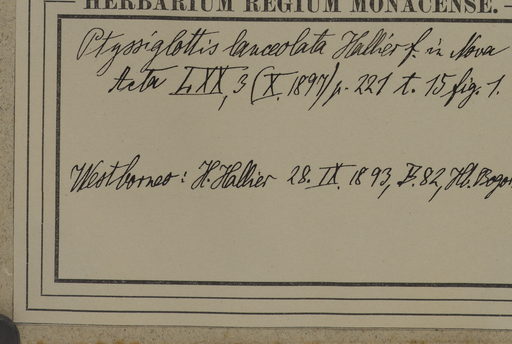 HERBARIUM REGIUM MONACENSE.
Ptyssiglottis lanceolata Hallier f. in Nova
Acta LXX, 3 (X. 1897) p. 221 t. 15 fig. 1.
Westborneo: H. Hallier 28. IX. 1893, B. 82, Hb. Bogor